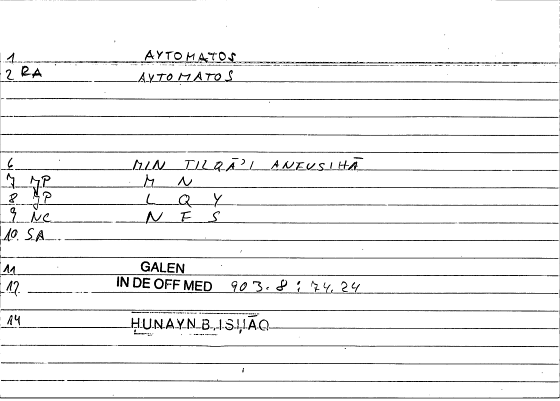 1 AYTOMATOS
2 RA AYTOMATOS
6 MIN TILQĀ'I ANFUSIHĀ
7 JP M N
8 JP L Q Y
9 NC N F S
10. SA
11 GALEN
12 IN DE OFF MED 903.8 : 74.24
14 ḤUNAYN B. ISḤĀQ